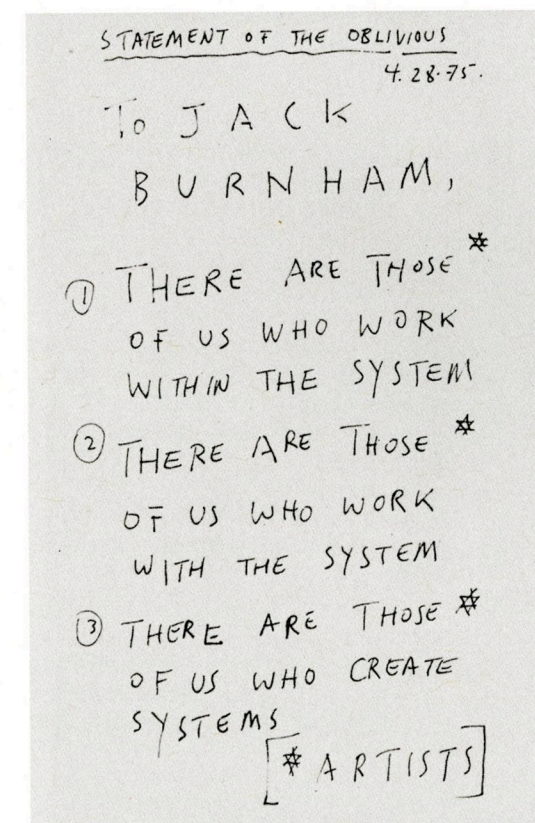 STATEMENT OF THE OBLIVIOUS
4.28.75.
To JACK
BURNHAM,
① THERE ARE THOSE *
OF US WHO WORK
WITHIN THE SYSTEM
② THERE ARE THOSE *
OF US WHO WORK
WITH THE SYSTEM
③ THERE ARE THOSE *
OF US WHO CREATE
SYSTEMS
[* ARTISTS]